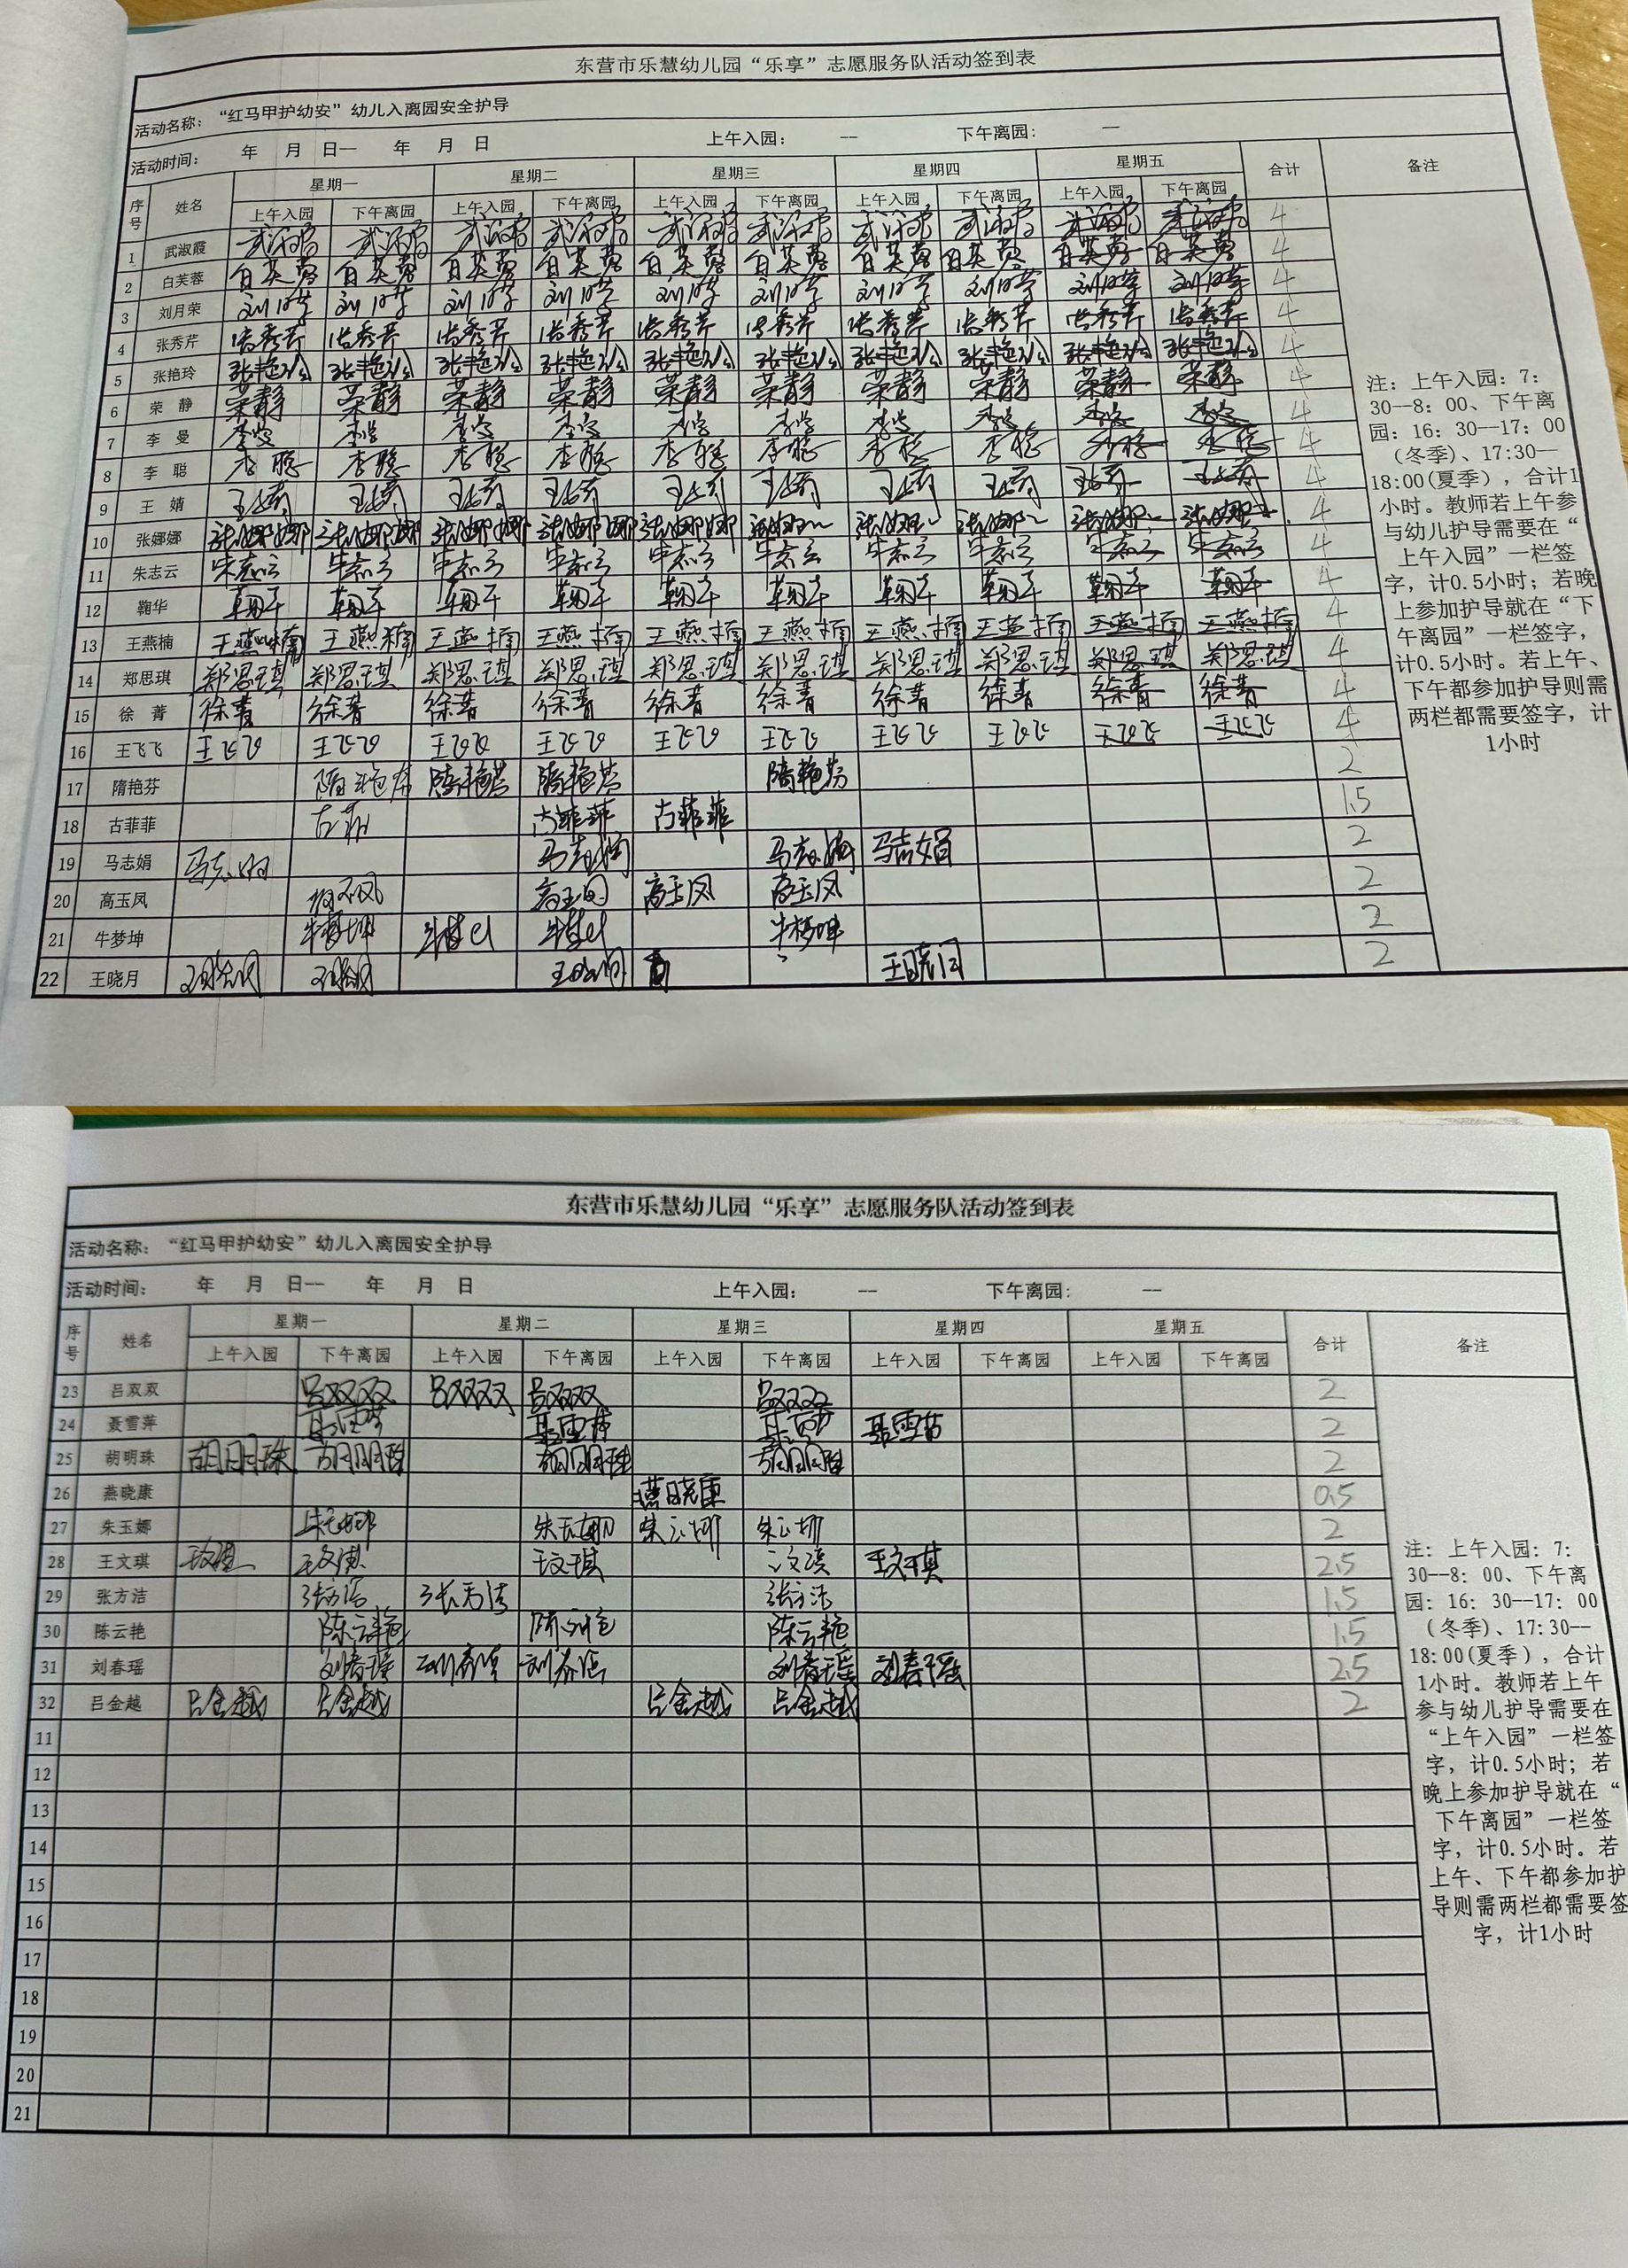 东营市乐慧幼儿园“乐享”志愿服务队活动签到表
活动名称：“红马甲护幼安”幼儿入离园安全护导
活动时间： 年 月 日—— 年 月 日 上午入园： —— 下午离园： ——
序号 姓名 星期一 星期二 星期三 星期四 星期五 合计 备注
上午入园 下午离园 上午入园 下午离园 上午入园 下午离园 上午入园 下午离园 上午入园 下午离园
1 武淑霞 武淑霞 武淑霞 武淑霞 武淑霞 武淑霞 武淑霞 武淑霞 武淑霞 武淑霞 武淑霞 4
2 白芙蓉 白芙蓉 白芙蓉 白芙蓉 白芙蓉 白芙蓉 白芙蓉 白芙蓉 白芙蓉 白芙蓉 白芙蓉 4
3 刘月荣 刘月荣 刘月荣 刘月荣 刘月荣 刘月荣 刘月荣 刘月荣 刘月荣 刘月荣 刘月荣 4
4 张秀芹 张秀芹 张秀芹 张秀芹 张秀芹 张秀芹 张秀芹 张秀芹 张秀芹 张秀芹 张秀芹 4
5 张艳玲 张艳玲 张艳玲 张艳玲 张艳玲 张艳玲 张艳玲 张艳玲 张艳玲 张艳玲 张艳玲 4
6 荣 静 荣静 荣静 荣静 荣静 荣静 荣静 荣静 荣静 荣静 荣静 4
7 李 曼 李曼 李曼 李曼 李曼 李曼 李曼 李曼 李曼 李曼 李曼 4
8 李 聪 李聪 李聪 李聪 李聪 李聪 李聪 李聪 李聪 李聪 李聪 4
9 王 婧 王婧 王婧 王婧 王婧 王婧 王婧 王婧 王婧 王婧 王婧 4
10 张娜娜 张娜娜 张娜娜 张娜娜 张娜娜 张娜娜 张娜娜 张娜娜 张娜娜 张娜娜 张娜娜 4
11 朱志云 朱志云 朱志云 朱志云 朱志云 朱志云 朱志云 朱志云 朱志云 朱志云 朱志云 4
12 鞠华 鞠华 鞠华 鞠华 鞠华 鞠华 鞠华 鞠华 鞠华 鞠华 鞠华 4
13 王燕楠 王燕楠 王燕楠 王燕楠 王燕楠 王燕楠 王燕楠 王燕楠 王燕楠 王燕楠 王燕楠 4
14 郑思琪 郑思琪 郑思琪 郑思琪 郑思琪 郑思琪 郑思琪 郑思琪 郑思琪 郑思琪 郑思琪 4
15 徐 菁 徐菁 徐菁 徐菁 徐菁 徐菁 徐菁 徐菁 徐菁 徐菁 徐菁 4
16 王飞飞 王飞飞 王飞飞 王飞飞 王飞飞 王飞飞 王飞飞 王飞飞 王飞飞 王飞飞 王飞飞 4
17 隋艳芬 隋艳芬 隋艳芬 隋艳芬 隋艳芬 2
18 古菲菲 古菲 古菲菲 古菲菲 1.5
19 马志娟 马志娟 马志娟 马志娟 马志娟 2
20 高玉凤 高玉凤 高玉凤 高玉凤 高玉凤 2
21 牛梦坤 牛梦坤 牛梦坤 牛梦坤 牛梦坤 2
22 王晓月 王晓月 王晓月 王晓月 王晓月 2
注：上午入园：7：
30——8：00、下午离
园：16：30——17：00
（冬季）、17:30——
18:00(夏季），合计1
小时。教师若上午参
与幼儿护导需要在“
上午入园”一栏签
字，计0.5小时；若晚
上参加护导就在“下
午离园”一栏签字，
计0.5小时。若上午、
下午都参加护导则需
两栏都需要签字，计
1小时
东营市乐慧幼儿园“乐享”志愿服务队活动签到表
活动名称：“红马甲护幼安”幼儿入离园安全护导
活动时间： 年 月 日—— 年 月 日 上午入园： —— 下午离园： ——
序号 姓名 星期一 星期二 星期三 星期四 星期五 合计 备注
上午入园 下午离园 上午入园 下午离园 上午入园 下午离园 上午入园 下午离园 上午入园 下午离园
23 吕双双 吕双双 吕双双 吕双双 吕双双 2
24 聂雪萍 聂雪萍 聂雪萍 聂雪萍 聂雪萍 2
25 胡明珠 胡明珠 胡明珠 胡明珠 胡明珠 2
26 燕晓康 燕晓康 0.5
27 朱玉娜 朱玉娜 朱玉娜 朱玉娜 朱玉娜 2
28 王文琪 王文琪 王文琪 王文琪 王文琪 王文琪 2.5
29 张方洁 张方洁 张方洁 张方洁 1.5
30 陈云艳 陈云艳 陈云艳 陈云艳 1.5
31 刘春瑶 刘春瑶 刘春瑶 刘春瑶 刘春瑶 刘春瑶 2.5
32 吕金越 吕金越 吕金越 吕金越 吕金越 2
11
12
13
14
15
16
17
18
19
20
21
注：上午入园：7：
30——8：00、下午离
园：16：30——17：00
（冬季）、17:30——
18:00(夏季），合计
1小时。教师若上午
参与幼儿护导需要在
“上午入园”一栏签
字，计0.5小时；若
晚上参加护导就在“
下午离园”一栏签
字，计0.5小时。若
上午、下午都参加护
导则需两栏都需要签
字，计1小时